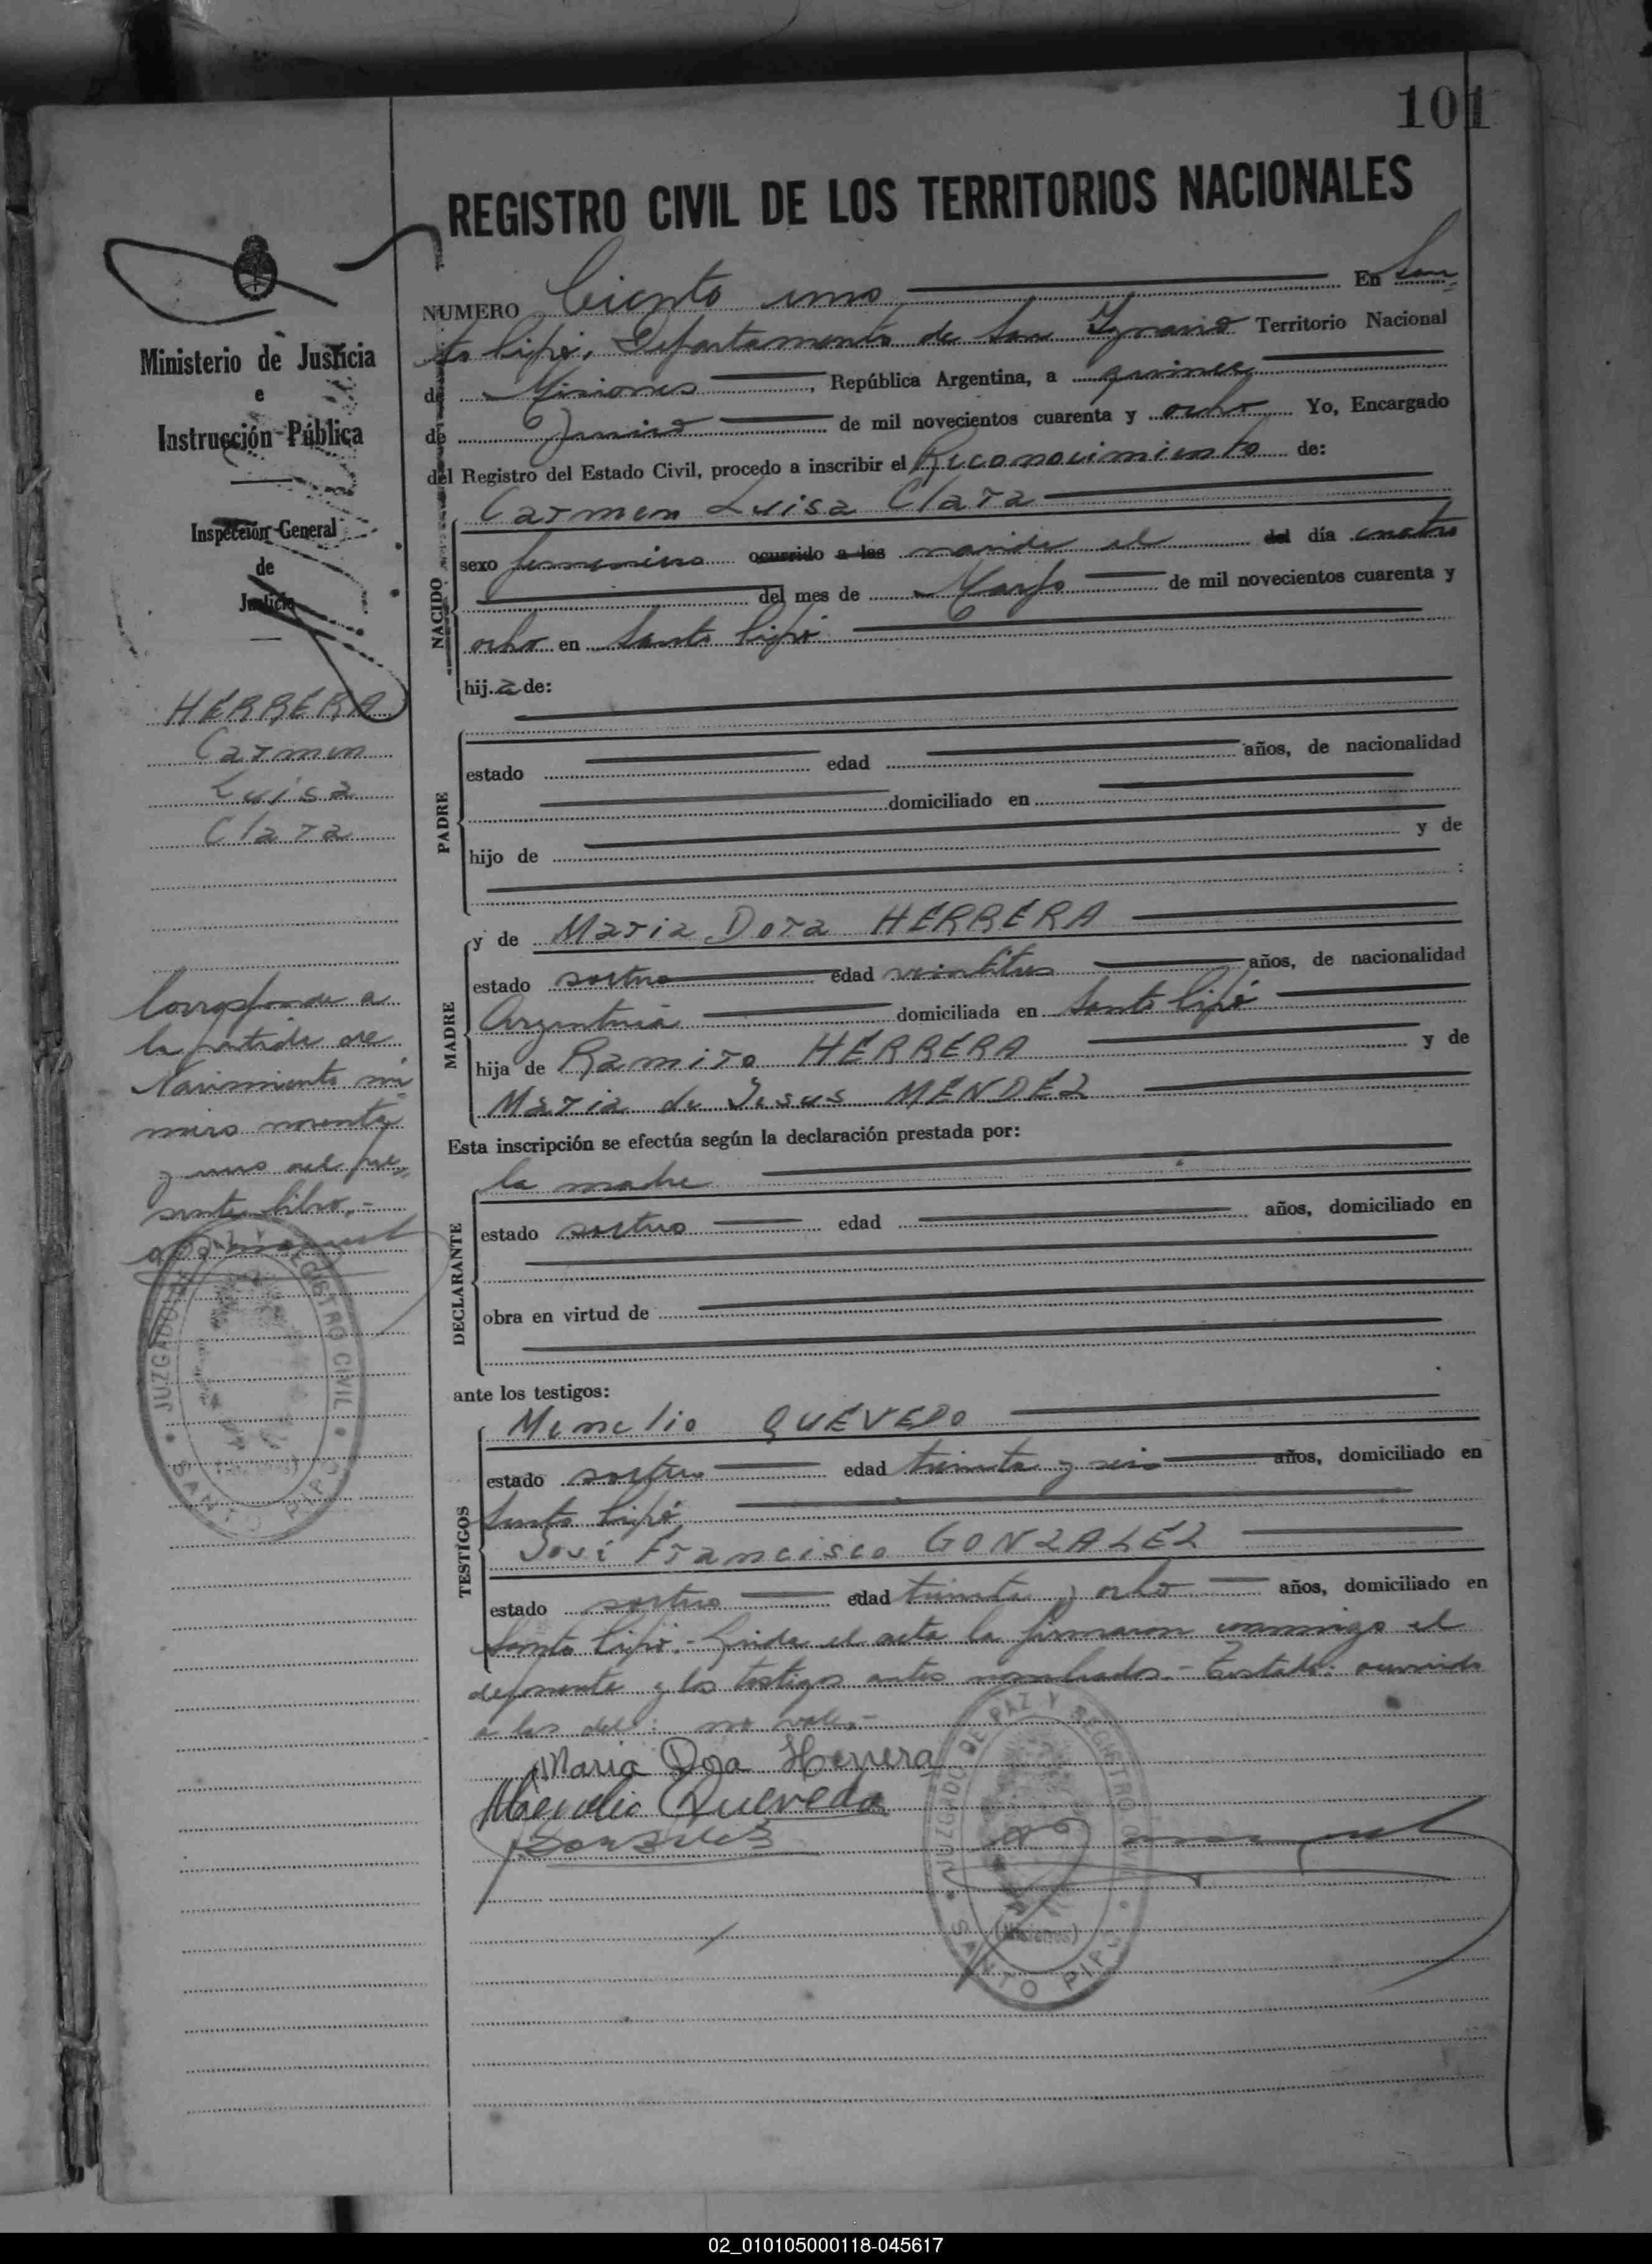 101
REGISTRO CIVIL DE LOS TERRITORIOS NACIONALES
NUMERO Ciento uno En San
to Pipó, Departamento de San Ignacio Territorio Nacional
de Misiones, República Argentina, a quince
de Junio de mil novecientos cuarenta y ocho Yo, Encargado
del Registro del Estado Civil, procedo a inscribir el Reconocimiento de:
Carmen Luisa Clara
NACIDO
sexo femenino ocurrido a las nacida el del día cuatro
del mes de Marzo de mil novecientos cuarenta y
ocho en Santo Pipó
hija de:
PADRE
estado edad años, de nacionalidad
domiciliado en
hijo de y de
:
MADRE
y de Maria Dora HERRERA
estado soltera edad veintitres años, de nacionalidad
Argentina domiciliada en Santo Pipó
hija de Ramiro HERRERA y de
Maria de Jesus MENDEZ
Esta inscripción se efectúa según la declaración prestada por:
DECLARANTE
la madre
estado soltero edad años, domiciliado en
obra en virtud de
ante los testigos:
TESTIGOS
QUEVEDO
estado soltero edad treinta y seis años, domiciliado en
Santo Pipó
José Francisco GONZALEZ
estado soltero edad treinta y ocho años, domiciliado en
Santo Pipó.- Leida el acta la firmaron conmigo el
deponente y los testigos antes nombrados.- Testado: ocurrido
a las del: no vale.-
Maria Dora Herrera
Quevedo
Gonzalez
JUZGADO DE PAZ Y REGISTRO CIVIL
(Misiones)
SANTO PIPÓ
Ministerio de Justicia
e
Instrucción Pública
Inspección General
de
Justicia
HERRERA
Carmen
Luisa
Clara
Corresponde a
la partida de
Nacimiento nú
mero noventa
y uno del pre
sente libro.-
JUZGADO DE PAZ Y REGISTRO CIVIL
(Misiones)
SANTO PIPÓ
02_010105000118-045617